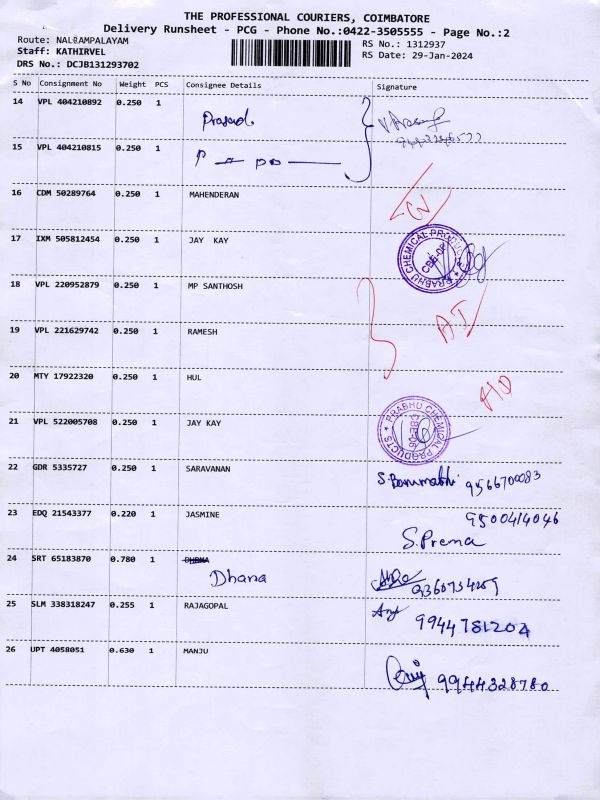 THE PROFESSIONAL COURIERS, COIMBATORE
Delivery Runsheet - PCG - Phone No.:0422-3505555 - Page No.:2
Route: NALLAMPALAYAM
RS No.: 1312937
Staff: KATHIRVEL
RS Date: 29-Jan-2024
DRS No.: DCJB131293702
S No Consignment No Weight PCS Consignee Details Signature
14 VPL 404210892 0.250 1 Prasad
15 VPL 404210815 0.250 1
16 CDM 50289764 0.250 1 MAHENDERAN
17 IXM 505812454 0.250 1 JAY KAY
PRABHU CHEMICAL PRODUCTS
18 VPL 220952879 0.250 1 MP SANTHOSH
19 VPL 221629742 0.250 1 RAMESH
20 MTY 17922320 0.250 1 HUL
21 VPL 522005708 0.250 1 JAY KAY
PRABHU CHEMICAL PRODUCTS
22 GDR 5335727 0.250 1 SARAVANAN
23 EDQ 21543377 0.220 1 JASMINE 9500414046
S. Prema
24 SRT 65183870 0.780 1
Dhana
25 SLM 338318247 0.255 1 RAJAGOPAL 9944781204
26 UPT 4058051 0.630 1 MANJU
9944328780